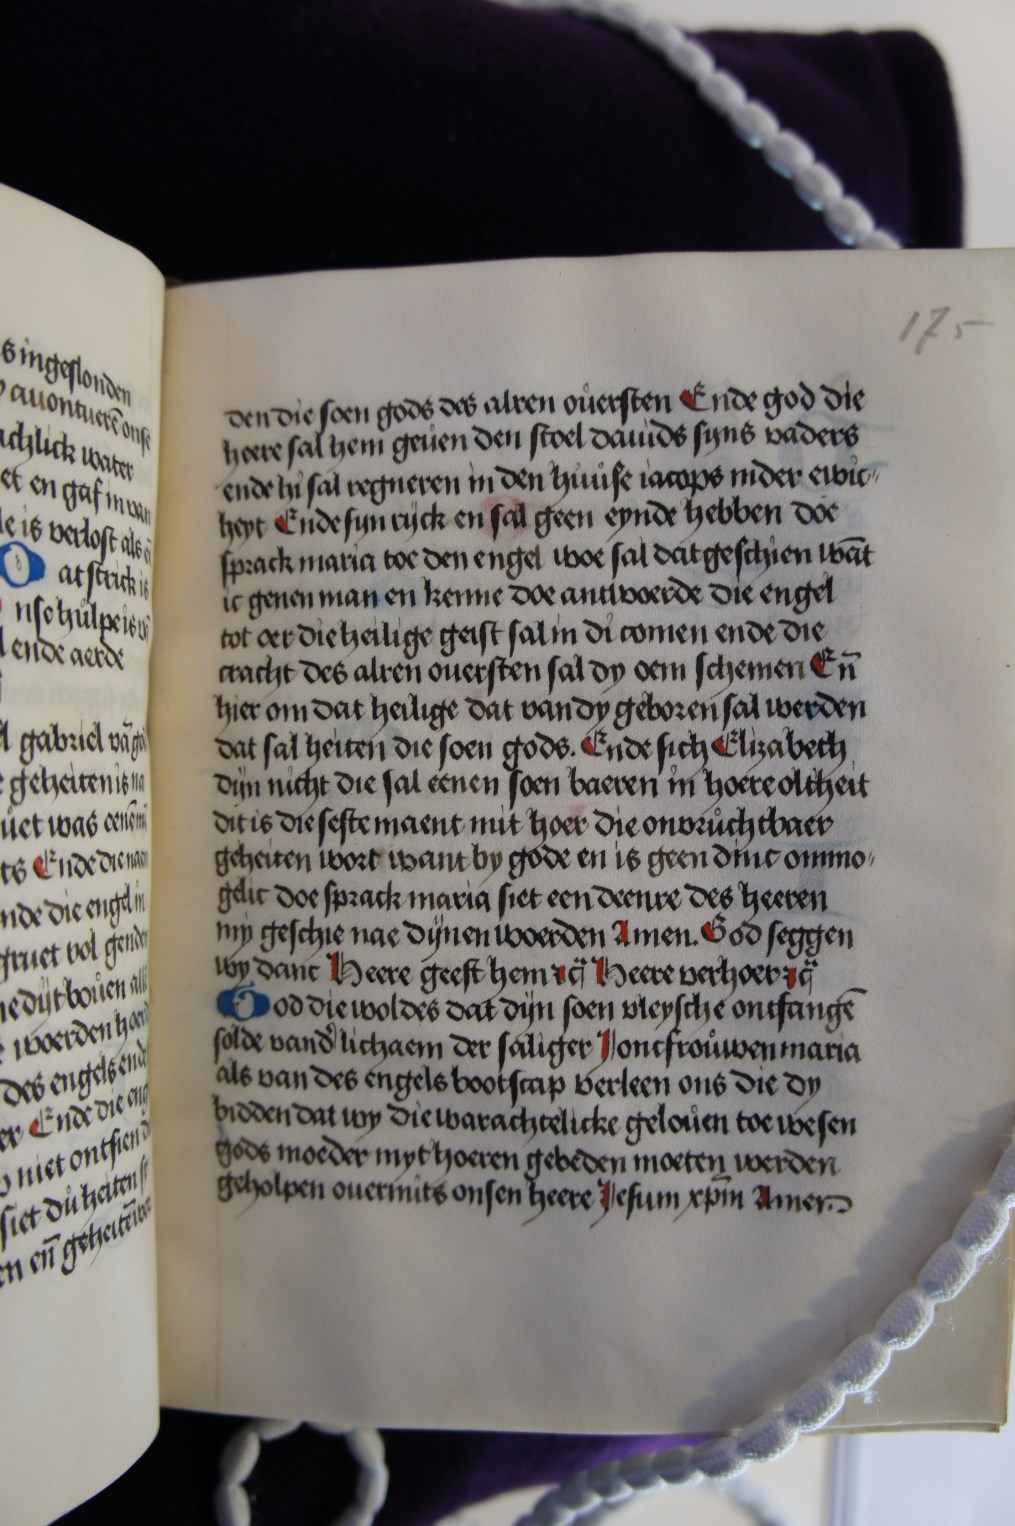 s ingeslonden
auontuerē onse
achlick water
et en gaf in van
de is verlost als
at strick is
nse hůlpe is
ende aerde
gabriel vā
geheiten is na
ůet was
Ende die
nde die engel
gruet vol
bouen
woerden
des engels ende
er Ende die
niet ontsien
siet dů heiten
en en̄
175
den die soen gods des alren oůersten Ende god die
heere sal hem geůen den stoel dauids syns vaders
ende hi sal regneren in den hůůse iacops nider ewic⸗
heyt Ende syn ryck en sal geen eynde hebben doe
sprack maria toe den engel woe sal dat geschien wāt
ic genen man en kenne doe antwoerde die engel
tot oer die heilige geist sal in di comen ende die
cracht des alren ouersten sal dy oem schemen En̄
hier om dat heilige dat van dy geboren sal werden
dat sal heiten die soen gods. Ende sich Elizabeth
dijn nicht die sal eenen soen baeren in hoere oltheit
dit is die seste maent mit hoer die onvrůchtbaer
geheiten wort want by gode en is geen dinc ommo⸗
gelic doe sprack maria siet een deenre des heeren
my geschie nae dijnen woerden Amen. God seggen
wy danc Heere geeft hem Heere verhoer
God die woldes dat dijn soen vleysche ontfangē
solde vand lichaem der saliger Joncfroůwen maria
als van des engels bootscap verleen ons die dy
bidden dat wy die warachtelicke geloůen toe wesen
gods moeder myt hoeren gebeden moeten werden
geholpen ouermits onsen heere Jesum xp̄m Amen